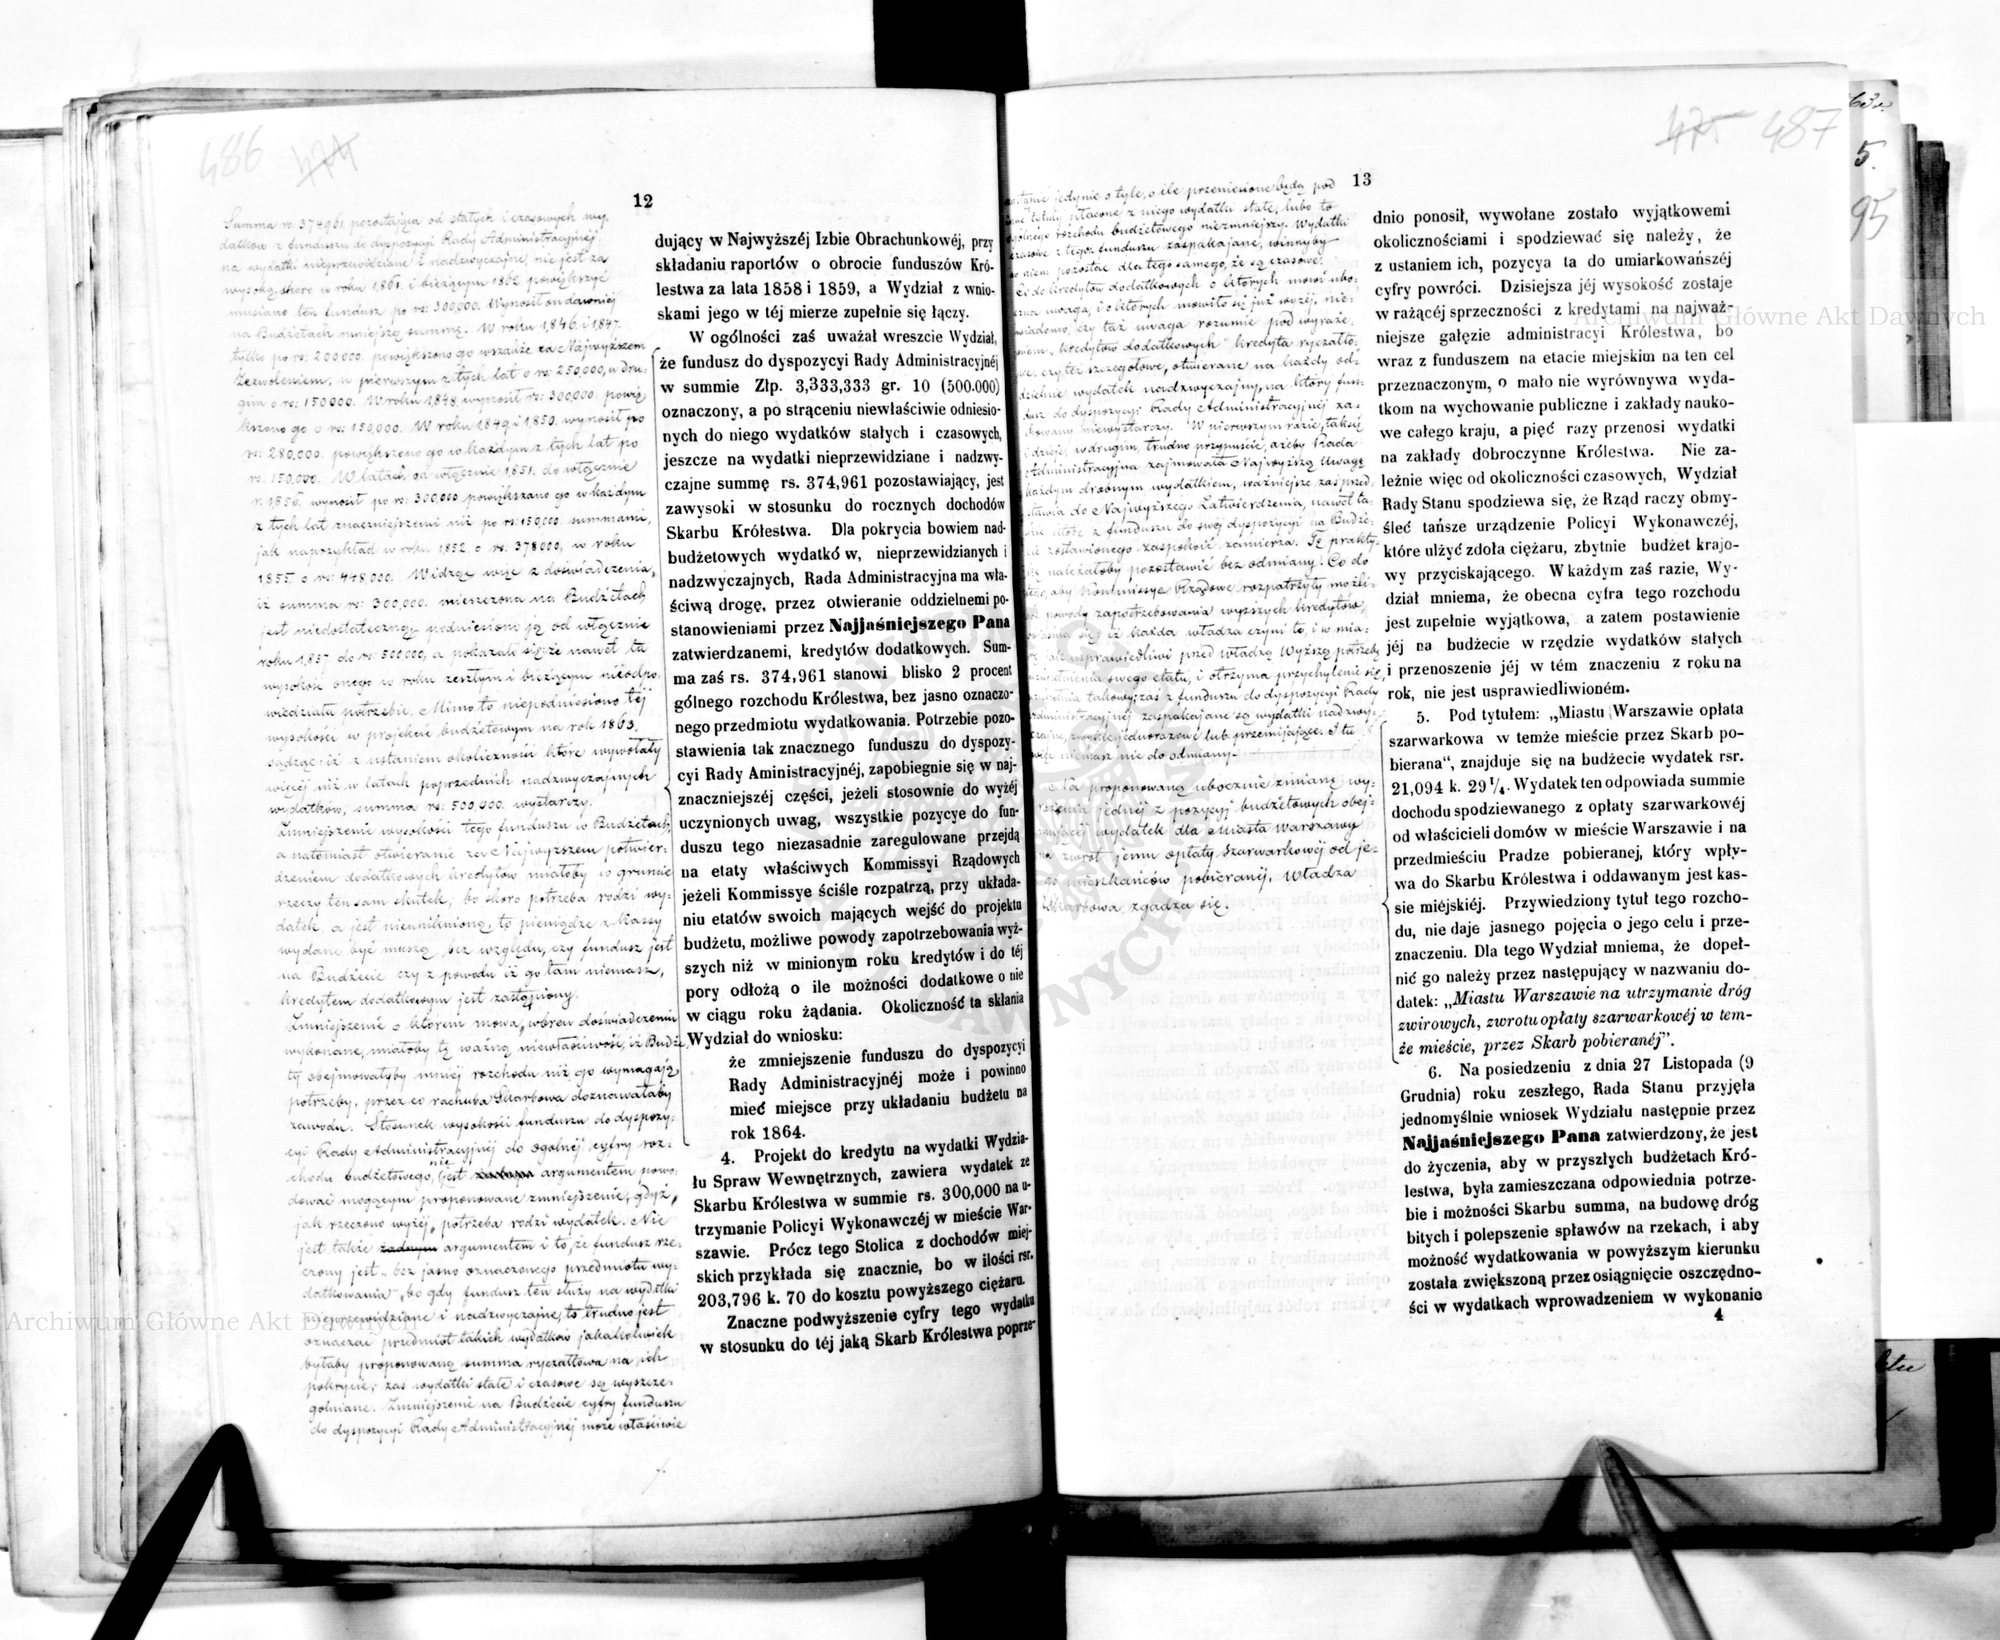 486 474
12
Summa rs. 374961. pozostająca od stałych i czasowych wy-
datków z funduszu do dyspozycyi Rady Administracyjnéj
na wydatki nieprzewidziane i nadzwyczajne, nie jest za
wysoką, skoro w roku 1861. i bieżącym 1862 powiększyć
musiano ten fundusz po rs: 300,000. Wynosił on dawniej
na Budżetach mniejszą summę. W roku 1846. i 1847.
tylko po rs: 200,000. powiększono go wszakże za Najwyższem
Zezwoleniem, w pierwszym z tych lat o rs: 250,000, w dru-
gim o rs: 150,000. W roku 1848. wynosił rs: 300,000. powię-
kszono go o rs: 150,000. W roku 1849. i 1850. wynosił po
rs: 280,000. powiększono go w każdym z tych lat po
rs: 150,000. W latach od włącznie 1851. do włącznie
r. 1856. wynosił po rs: 300,000 powiększano go w każdym
z tych lat znaczniejszemi niż po rs: 150,000. summami,
jak naprzykład w roku 1852. o rs: 378,000, w roku
1855. o rs: 448,000. Widząc więc z doświadczenia,
iż summa rs: 300,000. mieszczona na Budżetach
jest niedostateczną, podniesiono ją od włącznie
roku 1857. do rs: 500,000, a pokazało się, że nawet ta
wysokość onego w roku zeszłym i bieżącym nieodpo-
wiedziała potrzebie. Mimo to niepodniesiono téj
wysokości w projekcie budżetowym na rok 1863.
sądząc: iż z ustaniem okoliczności które wywołały
więcéj niż w latach poprzednich nadzwyczajnych
wydatków, summa rs: 500,000. wystarczy.
Zmniejszenie wysokości tego funduszu w Budżetach,
a natomiast otwieranie za Najwyższem potwier-
dzeniem dodatkowych kredytów miałoby w gruncie
rzeczy ten sam skutek, bo skoro potrzeba rodzi wy-
datek, a jest nieuniknioną, to pieniądze z kassy
wydane być muszą, bez względu, czy fundusz jest
na Budżecie czy z powodu iż go tam niemasz,
kredytem dodatkowym jest zastąpiony.
Zmniejszenie o którem mowa, wbrew doświadczeniu
wykonane, miałoby tę ważną niewłaściwość, iż Budże-
ty obejmowałyby mniéj rozchodu niż go wymagają
potrzeby, przez co rachuba Skarbowa doznawałaby
zawodu. Stosunek wysokości funduszu do dyspozy-
cyi Rady Administracyjnéj do ogólnéj cyfry roz-
chodu budżetowego, nie jest argumentem powo-
dować mogącym proponowane zmniejszenie, gdyż,
jak rzeczono wyżéj, potrzeba rodzi wydatek. Nie
jest także żadnym argumentem i to, że fundusz rze-
czony jest „bez jasno oznaczonego przedmiotu wy-
datkowania" bo gdy fundusz ten służy na wydatki
nieprzewidziane i nadzwyczajne, to trudno jest
oznaczać przedmiot takich wydatków jakakolwiek
byłaby proponowaną summa ryczałtowa na ich
pokrycie; zaś wydatki stałe i czasowe są wyszcze-
gólniane. Zmniejszenie na Budżecie cyfry funduszu
do dyspozycyi Rady Administracyjnéj może właściwie
dujący w Najwyższéj Izbie Obrachunkowéj, przy
składaniu raportów o obrocie funduszów Kró-
lestwa za lata 1858 i 1859, a Wydział z wnio-
skami jego w téj mierze zupełnie się łączy.
W ogólności zaś uważał wreszcie Wydział,
że fundusz do dyspozycyi Rady Administracyjnéj
w summie Złp. 3,333,333 gr. 10 (500.000)
oznaczony, a po strąceniu niewłaściwie odniesio-
nych do niego wydatków stałych i czasowych,
jeszcze na wydatki nieprzewidziane i nadzwy-
czajne summę rs. 374,961 pozostawiający, jest
zawysoki w stosunku do rocznych dochodów
Skarbu Królestwa. Dla pokrycia bowiem nad-
budżetowych wydatków, nieprzewidzianych i
nadzwyczajnych, Rada Administracyjna ma wła-
ściwą drogę, przez otwieranie oddzielnemi po-
stanowieniami przez Najjaśniejszego Pana
zatwierdzanemi, kredytów dodatkowych. Sum-
ma zaś rs. 374,961 stanowi blisko 2 procent
gólnego rozchodu Królestwa, bez jasno oznaczo-
nego przedmiotu wydatkowania. Potrzebie pozo-
stawienia tak znacznego funduszu do dyspozy-
cyi Rady Aministracyjnéj, zapobiegnie się w naj-
znaczniejszéj części, jeżeli stosownie do wyżéj
uczynionych uwag, wszystkie pozycye do fun-
duszu tego niezasadnie zaregulowane przejdą
na etaty właściwych Kommissyi Rządowych
jeżeli Kommissye ściśle rozpatrzą, przy układa-
niu etatów swoich mających wejść do projektu
budżetu, możliwe powody zapotrzebowania wyż-
szych niż w minionym roku kredytów i do téj
pory odłożą o ile możności dodatkowe o nie
w ciągu roku żądania. Okoliczność ta skłania
Wydział do wniosku:
że zmniejszenie funduszu do dyspozycyi
Rady Administracyjnéj może i powinno
mieć miejsce przy układaniu budżetu na
rok 1864.
4. Projekt do kredytu na wydatki Wydzia-
łu Spraw Wewnętrznych, zawiera wydatek ze
Skarbu Królestwa w summie rs. 300,000 na u-
trzymanie Policyi Wykonawczéj w mieście War-
szawie. Prócz tego Stolica z dochodów miej-
skich przykłada się znacznie, bo w ilości rsr.
203,796 k. 70 do kosztu powyższego ciężaru.
Znaczne podwyższenie cyfry tego wydatku
w stosunku do téj jaką Skarb Królestwa poprze-
475 487
13
jedynie o tyle, o ile przeniesione będą pod
tytuły płacone z niego wydatki stałe, lubo to
rozchodu budżetowego niezmniejszy. Wydatki
czasowe z tegoż funduszu zaspakajane, winnyby
w niem pozostać dla tego samego, że są czasowe.
Co do kredytów dodatkowych o których mówi ubo-
czna uwaga, i o których mówiło się już wyżéj, nie-
wiadomo, czy taż uwaga rozumie pod wyraże-
niem „kredytów dodatkowych" kredyta ryczałto-
we, czy téż szczegółowe, otwierane na każdy od-
dzielnie wydatek nadzwyczajny, na który fun-
dusz do dyspozycyi Rady Administracyjnéj za-
niewystarczy. W pierwszym razie, tak się
i dzieje; w drugim, trudno przypuścić, ażeby Rada
Administracyjna zajmowała Najwyższą Uwagę
każdym drobnym wydatkiem, ważniejsze zaś przed-
stawia do Najwyższego Zatwierdzenia, nawet ta-
kie które z funduszu do swéj dyspozycyi na Budże-
cie zostawionego zaspokoić zamierza. Tę prakty-
kę należałoby pozostawić bez odmiany. Co do
tego, aby Kommissye Rządowe rozpatrzyły możli-
we powody zapotrzebowania wyższych kredytów,
się iż każda władza czyni to, i w mia-
rę jak usprawiedliwi przed władzą Wyższą potrzebę
swego etatu, i otrzyma przychylenie się,
takowy; zaś z funduszu do dyspozycyi Rady
Administracyjnéj zaspakajane są wydatki nadzwy-
czajne, zwykle jednorazowe lub przemijające. I tu
więc niemasz nic do odmiany.
Na proponowaną ubocznie zmianę wy-
rażenia jednéj z pozycyi budżetowych obej-
mującéj wydatek dla Miasta Warszawy
na zwrot jemu opłaty szarwarkowéj od je-
go mieszkańców pobieranéj, Władza
Skarbowa zgadza się.
dnio ponosił, wywołane zostało wyjątkowemi
okolicznościami i spodziewać się należy, że
z ustaniem ich, pozycya ta do umiarkowańszéj
cyfry powróci. Dzisiejsza jéj wysokość zostaje
w rażącéj sprzeczności z kredytami na najważ-
niejsze gałęzie administracyi Królestwa, bo
wraz z funduszem na etacie miejskim na ten cel
przeznaczonym, o mało nie wyrównywa wyda-
tkom na wychowanie publiczne i zakłady nauko-
we całego kraju, a pięć razy przenosi wydatki
na zakłady dobroczynne Królestwa. Nie za-
leżnie więc od okoliczności czasowych, Wydział
Rady Stanu spodziewa się, że Rząd raczy obmy-
śleć tańsze urządzenie Policyi Wykonawczéj,
które ulżyć zdoła ciężaru, zbytnie budżet krajo-
wy przyciskającego. W każdym zaś razie, Wy-
dział mniema, że obecna cyfra tego rozchodu
jest zupełnie wyjątkowa, a zatem postawienie
jéj na budżecie w rzędzie wydatków stałych
i przenoszenie jéj w tém znaczeniu z roku na
rok, nie jest usprawiedliwioném.
5. Pod tytułem: „Miastu Warszawie opłata
szarwarkowa w temże mieście przez Skarb po-
bierana", znajduje się na budżecie wydatek rsr.
21,094 k. 29 1/4. Wydatek ten odpowiada summie
dochodu spodziewanego z opłaty szarwarkowéj
od właścicieli domów w mieście Warszawie i na
przedmieściu Pradze pobieranej, który wpły-
wa do Skarbu Królestwa i oddawanym jest kas-
sie miéjskiéj. Przywiedziony tytuł tego rozcho-
du, nie daje jasnego pojęcia o jego celu i prze-
znaczeniu. Dla tego Wydział mniema, że dopeł-
nić go należy przez następujący w nazwaniu do-
datek: „Miastu Warszawie na utrzymanie dróg
zwirowych, zwrotu opłaty szarwarkowéj w tem-
że mieście, przez Skarb pobieranéj".
6. Na posiedzeniu z dnia 27 Listopada (9
Grudnia) roku zeszłego, Rada Stanu przyjęła
jednomyślnie wniosek Wydziału następnie przez
Najjaśniejszego Pana zatwierdzony, że jest
do życzenia, aby w przyszłych budżetach Kró-
lestwa, była zamieszczana odpowiednia potrze-
bie i możności Skarbu summa, na budowę dróg
bitych i polepszenie spławów na rzekach, i aby
możność wydatkowania w powyższym kierunku
została zwiększoną przez osiągnięcie oszczędno-
ści w wydatkach wprowadzeniem w wykonanie
4
5.
95
Archiwum Główne Akt Dawnych
Archiwum Główne Akt Dawnych